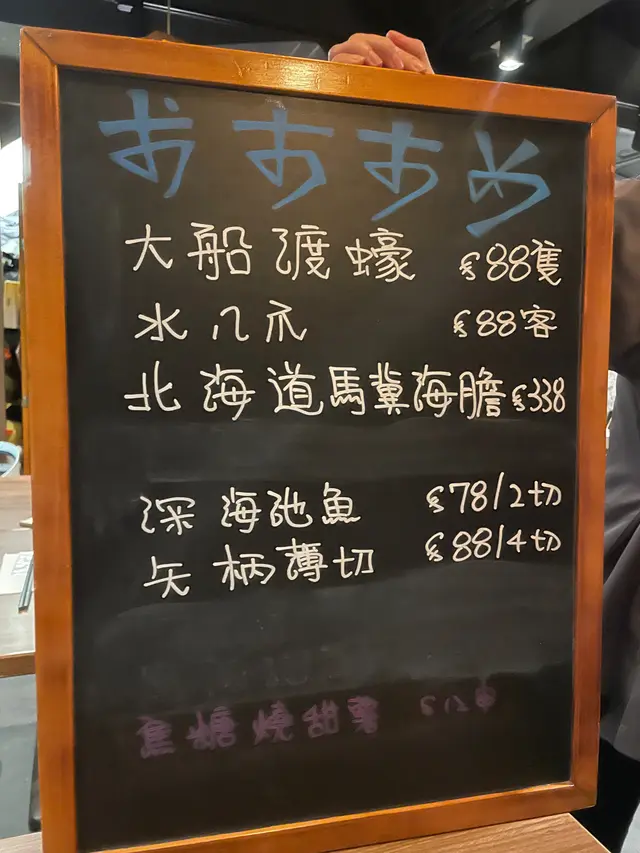 おすすめ
大船渡蠔 $88隻
水八爪 $88客
北海道馬糞海膽 $338
深海池魚 $78/2切
矢柄薄切 $88/4切
焦糖燒甜薯